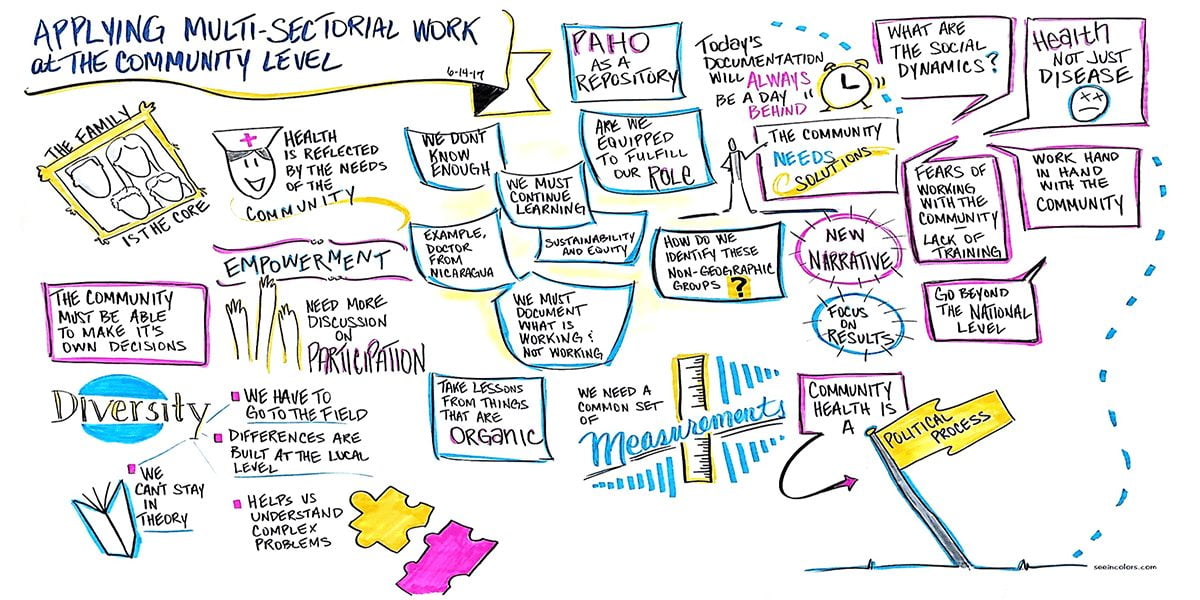 APPLYING MULTI-SECTORIAL WORK
at THE COMMUNITY LEVEL
6-14-17
PAHO
AS A
REPOSITORY
Today's
DOCUMENTATION
WILL ALWAYS
BE A DAY
BEHIND
WHAT ARE
THE SOCIAL
DYNAMICS?
Health
NOT JUST
DISEASE
THE FAMILY
IS THE CORE
HEALTH
IS REFLECTED
BY THE NEEDS
OF THE
COMMUNITY
WE DON'T
KNOW
ENOUGH
WE MUST
CONTINUE
LEARNING
ARE WE
EQUIPPED
TO FULFILL
OUR ROLE
THE COMMUNITY
NEEDS
SOLUTIONS
FEARS OF
WORKING
WITH THE
COMMUNITY
—
LACK OF
TRAINING
WORK HAND
IN HAND
WITH THE
COMMUNITY
EXAMPLE,
DOCTOR
FROM
NICARAGUA
SUSTAINABILITY
AND EQUITY
HOW DO WE
IDENTIFY THESE
NON-GEOGRAPHIC
GROUPS ?
NEW
NARRATIVE
EMPOWERMENT
THE COMMUNITY
MUST BE ABLE
TO MAKE IT'S
OWN DECISIONS
NEED MORE
DISCUSSION
ON
PARTICIPATION
WE MUST
DOCUMENT
WHAT IS
WORKING &
NOT WORKING
FOCUS
ON
RESULTS
GO BEYOND
THE NATIONAL
LEVEL
Diversity
WE HAVE TO
GO TO THE FIELD
DIFFERENCES ARE
BUILT AT THE LOCAL
LEVEL
WE
CAN'T STAY
IN
THEORY
HELPS US
UNDERSTAND
COMPLEX
PROBLEMS
TAKE LESSONS
FROM THINGS
THAT ARE
ORGANIC
WE NEED A
COMMON SET
OF
Measurements
COMMUNITY
HEALTH IS
A
POLITICAL
PROCESS
seeincolors.com